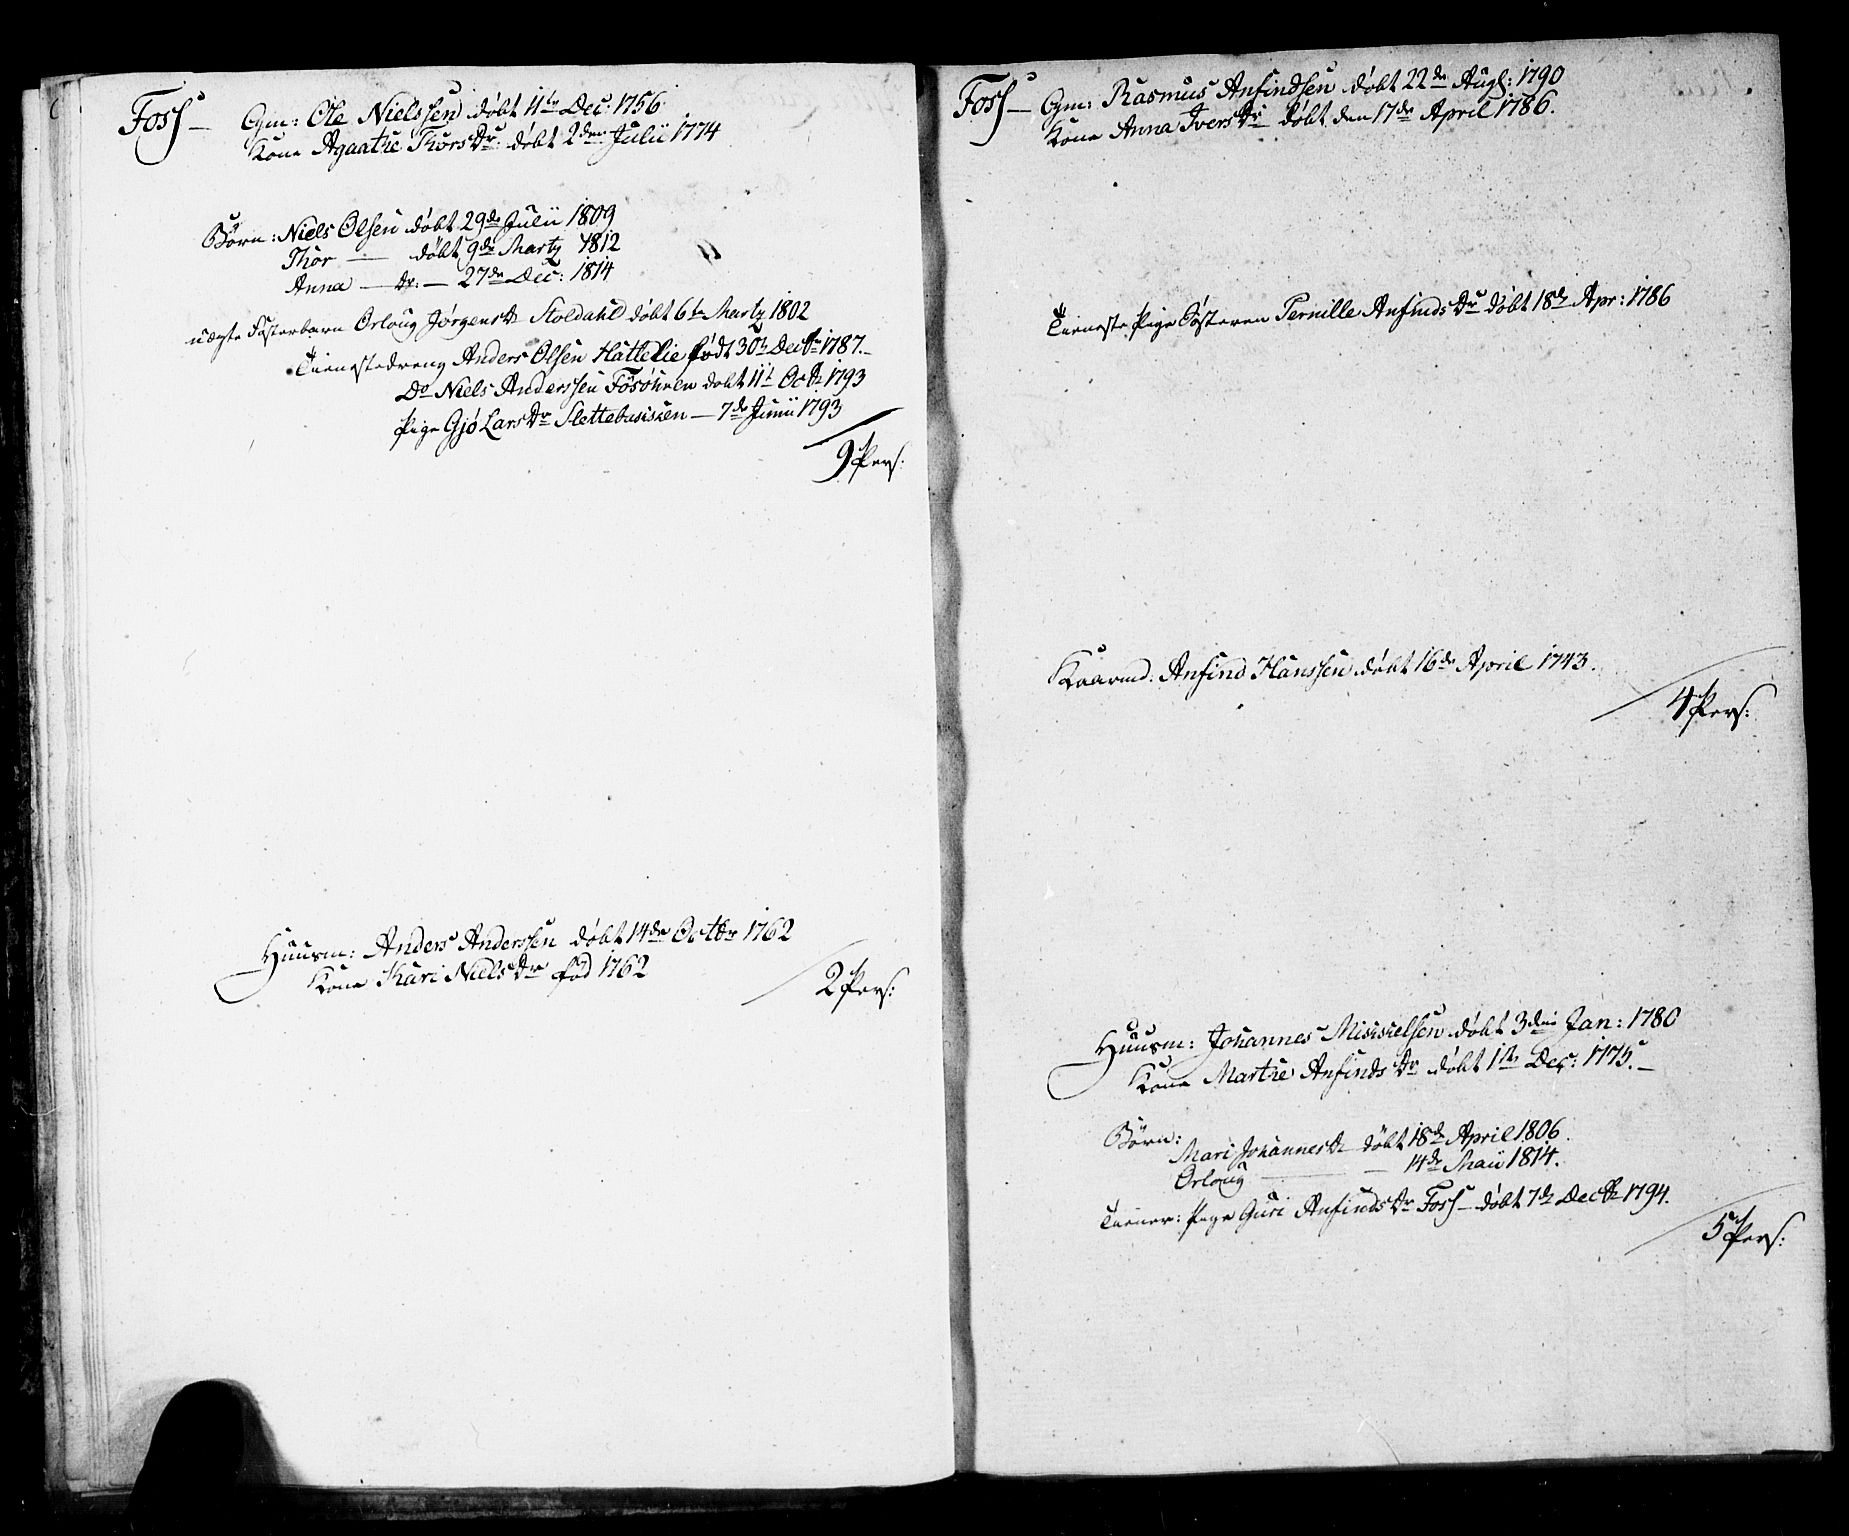 Foss — Gm: Ole Nielssen døbt 11te Dec: 1756
Kone Agaathe Thors Dr: døbt 2den Julii 1774
Børn: Niels Olsen døbt 29de Julii 1809
Thor — døbt 9de Marty 1812
Anna — Dr: — 27de Dec: 1814
uægte Fosterbarn Orloug Jørgens Dr Stoldahl døbt 6te Marty 1802
Tienestedreng Anders Olsen Hatlelie født 30te Decbr 1787. —
Do Niels Anderssen døbt 11te Octbr 1793
Pige Gjø Lars Dr Slettebakken — 7de Junii 1793
9 Pers:
Huusm: Anders Anderssen døbt 14de Octbr 1762
Kone Kari Niels Dr fød 1762
2 Pers:
Foss — Gm: Rasmus Anfindsen døbt 22de Aug: 1790
Kone Anna Ivers Dr døbt den 17de April 1786.
Tieneste Pige Søsteren Pernille Anfinds Dr døbt 18de Apr: 1786
Kaarmd: Anfind Hanssen døbt 16de April 1743.
4 Pers:
Huusm: Johannes Mikkelsen døbt 3die Jan: 1780
Kone Marthe Anfinds Dr døbt 1te Dec: 1775. —
Børn:
Mari Johannes Dr døbt 18de April 1806.
Orloug — — 14de Maii 1814.
Tiener: Pige Guri Anfinds Dr Foss — døbt 7de Decbr 1794.
5 Pers: